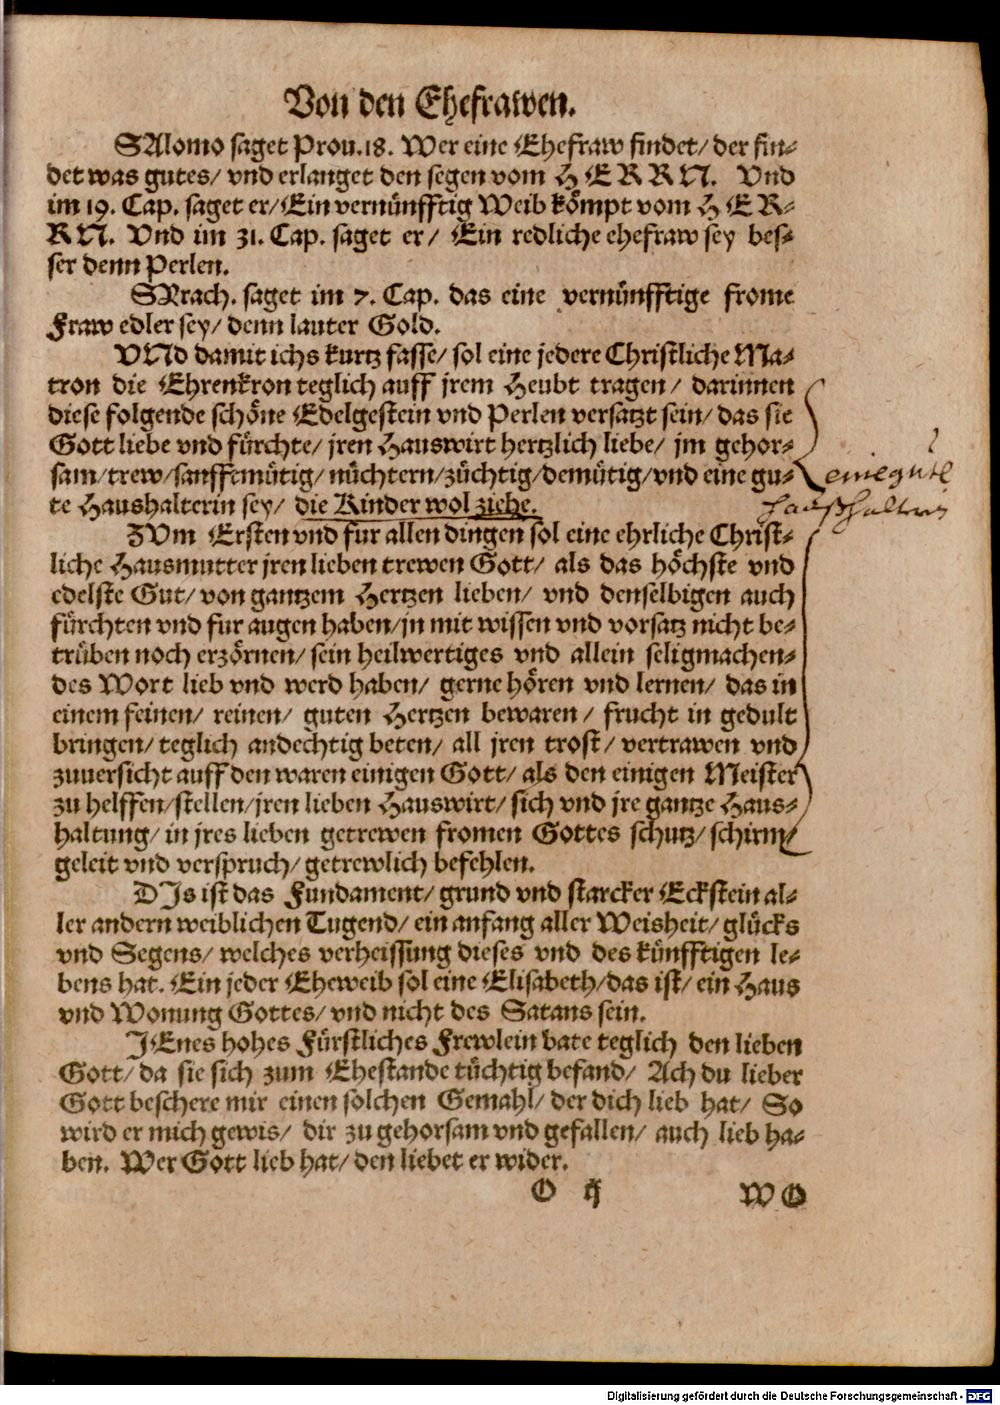 Von den Ehefrawen.
SAlomo saget Prou.18. Wer eine Ehefraw findet/ der fin-
det was gutes/ vnd erlanget den segen vom HERRN. Vnd
im 19. Cap. saget er/ Ein vernünfftig Weib kömpt vom HER-
RN. Vnd im 31. Cap. saget er/ Ein redliche ehefraw sey bes-
ser denn Perlen.
SYrach. saget im 7. Cap. das eine vernünfftige frome
Fraw edler sey/ denn lauter Gold.
VNd damit ichs kurtz fasse/ sol eine jedere Christliche Ma-
tron die Ehrenkron teglich auff jrem Heubt tragen/ darinnen
diese folgende schöne Edelgestein vnd Perlen versatzt sein/ das sie
Gott liebe vnd fürchte/ jren Hauswirt hertzlich liebe/ jm gehor-
sam/ trew/ sanfftmütig/ nüchtern/ züchtig/ demütig/ vnd eine gu-
te Haushalterin sey/ die Kinder wol ziehe.
eine gute
haußhalterin
ZVm Ersten vnd fur allen dingen sol eine ehrliche Christ-
liche Hausmutter jren lieben trewen Gott/ als das höchste vnd
edelste Gut/ von gantzem Hertzen lieben/ vnd denselbigen auch
fürchten vnd fur augen haben/ jn mit wissen vnd vorsatz nicht be-
trüben noch erzörnen/ sein heilwertiges vnd allein seligmachen-
des Wort lieb vnd werd haben/ gerne hören vnd lernen/ das in
einem feinen/ reinen/ guten Hertzen bewaren/ frucht in gedult
bringen/ teglich andechtig beten/ all jren trost/ vertrawen vnd
zuuersicht auff den waren einigen Gott/ als den einigen Meister
zu helffen/ stellen/ jren lieben Hauswirt/ sich vnd jre gantze Haus-
haltung/ in jres lieben getrewen fromen Gottes schutz/ schirm/
geleit vnd verspruch/ getrewlich befehlen.
DIs ist das Fundament/ grund vnd starcker Eckstein al-
ler andern weiblichen Tugend/ ein anfang aller Weisheit/ glücks
vnd Segens/ welches verheissung dieses vnd des künfftigen le-
bens hat. Ein jeder Eheweib sol eine Elisabeth/ das ist/ ein Haus
vnd Wonung Gottes/ vnd nicht des Satans sein.
JEnes hohes Fürstliches Frewlein bate teglich den lieben
Gott/ da sie sich zum Ehestande tüchtig befand/ Ach du lieber
Gott beschere mir einen solchen Gemahl/ der dich lieb hat/ So
wird er mich gewis/ dir zu gehorsam vnd gefallen/ auch lieb ha-
ben. Wer Gott lieb hat/ den liebet er wider.
O ij WO
Digitalisierung gefördert durch die Deutsche Forschungsgemeinschaft - DFG